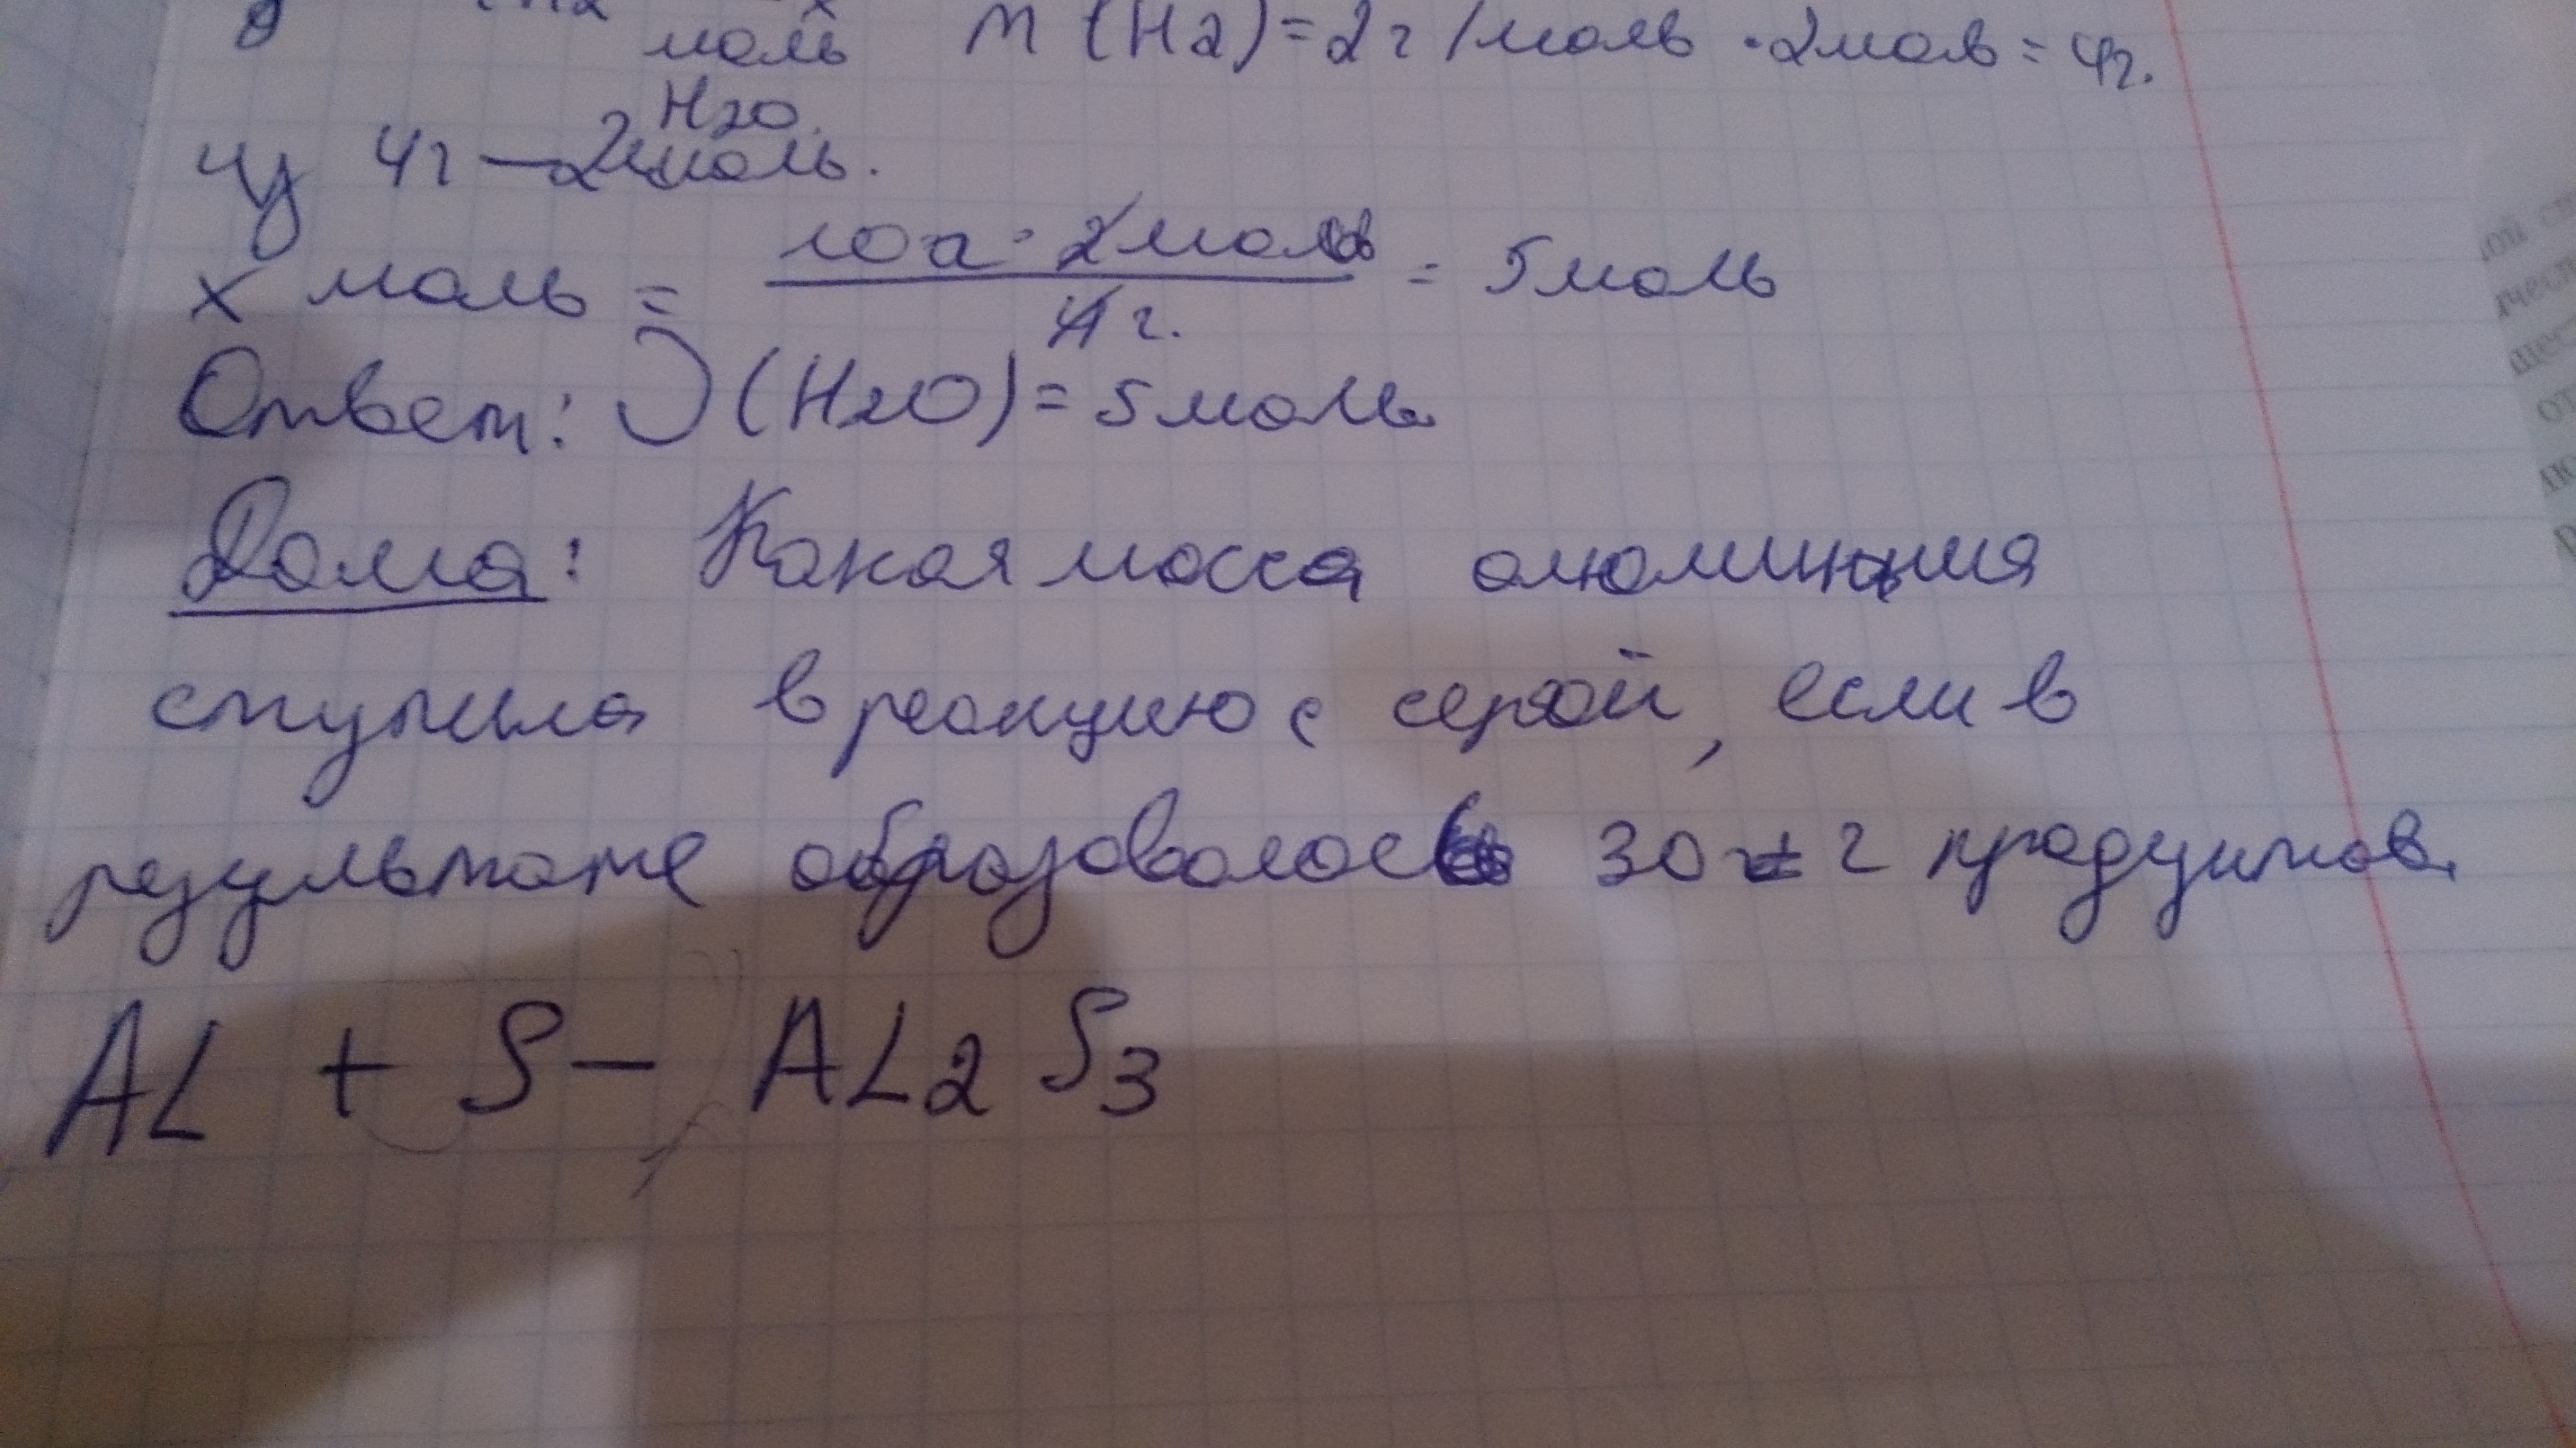 моль m (H2) = 2г/моль · 2моль = 4г.
H2O
из 4г — 2 моль.
x моль = 10г · 2моль / 4г. = 5 моль
Ответ: ν (H2O) = 5 моль
Дома: Какая масса алюминия
ступила в реакцию с серой, если в
результате образовалось 30 г продуктов.
AL + S — AL2 S3